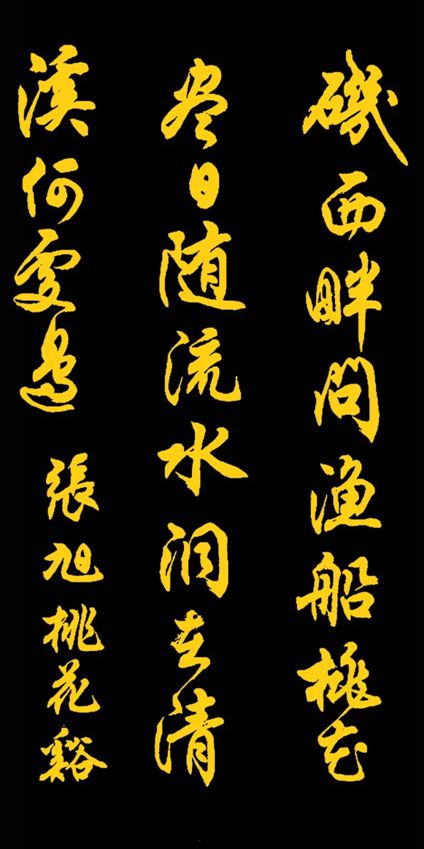 磯西畔问渔船桃花
尽日随流水洞在清
溪何處邊
張旭桃花谿